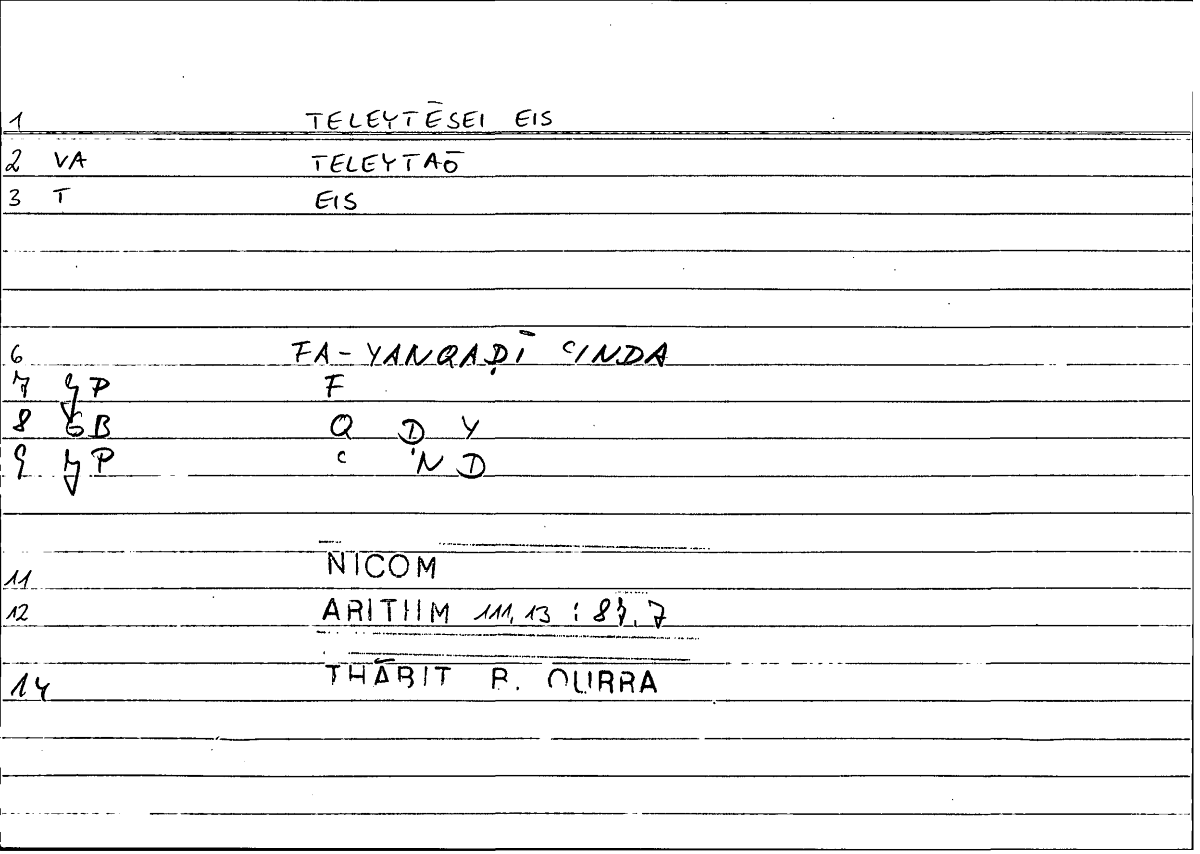 1 TELEYTĒSEI EIS
2 VA TELEYTAŌ
3 T EIS
6 FA-YANQAḌĪ ʿINDA
7 P F
8 GB Q Ḍ Y
9 P ʿ N D
11 NICOM
12 ARITHM 111,13 : 87,7
14 THĀBIT B. QURRA